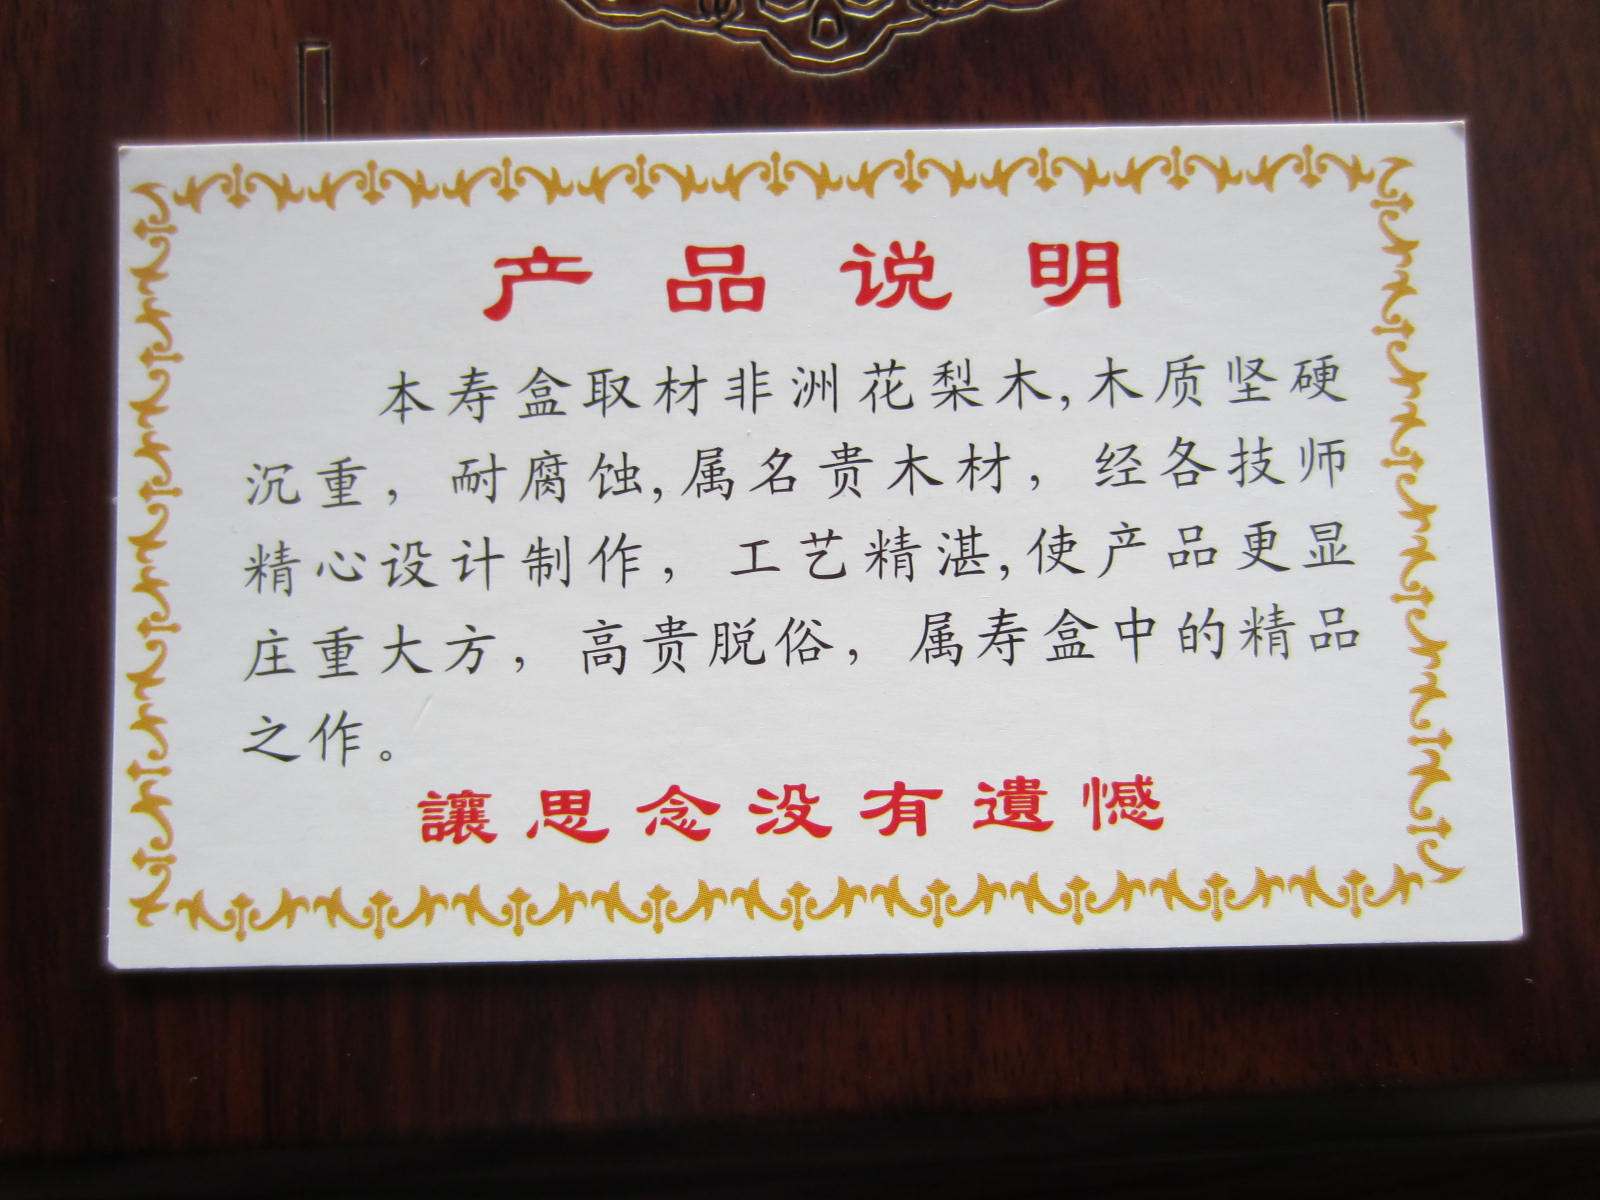 产品说明
本寿盒取材非洲花梨木,木质坚硬
沉重，耐腐蚀,属名贵木材，经各技师
精心设计制作，工艺精湛,使产品更显
庄重大方，高贵脱俗，属寿盒中的精品
之作。
讓思念没有遺憾